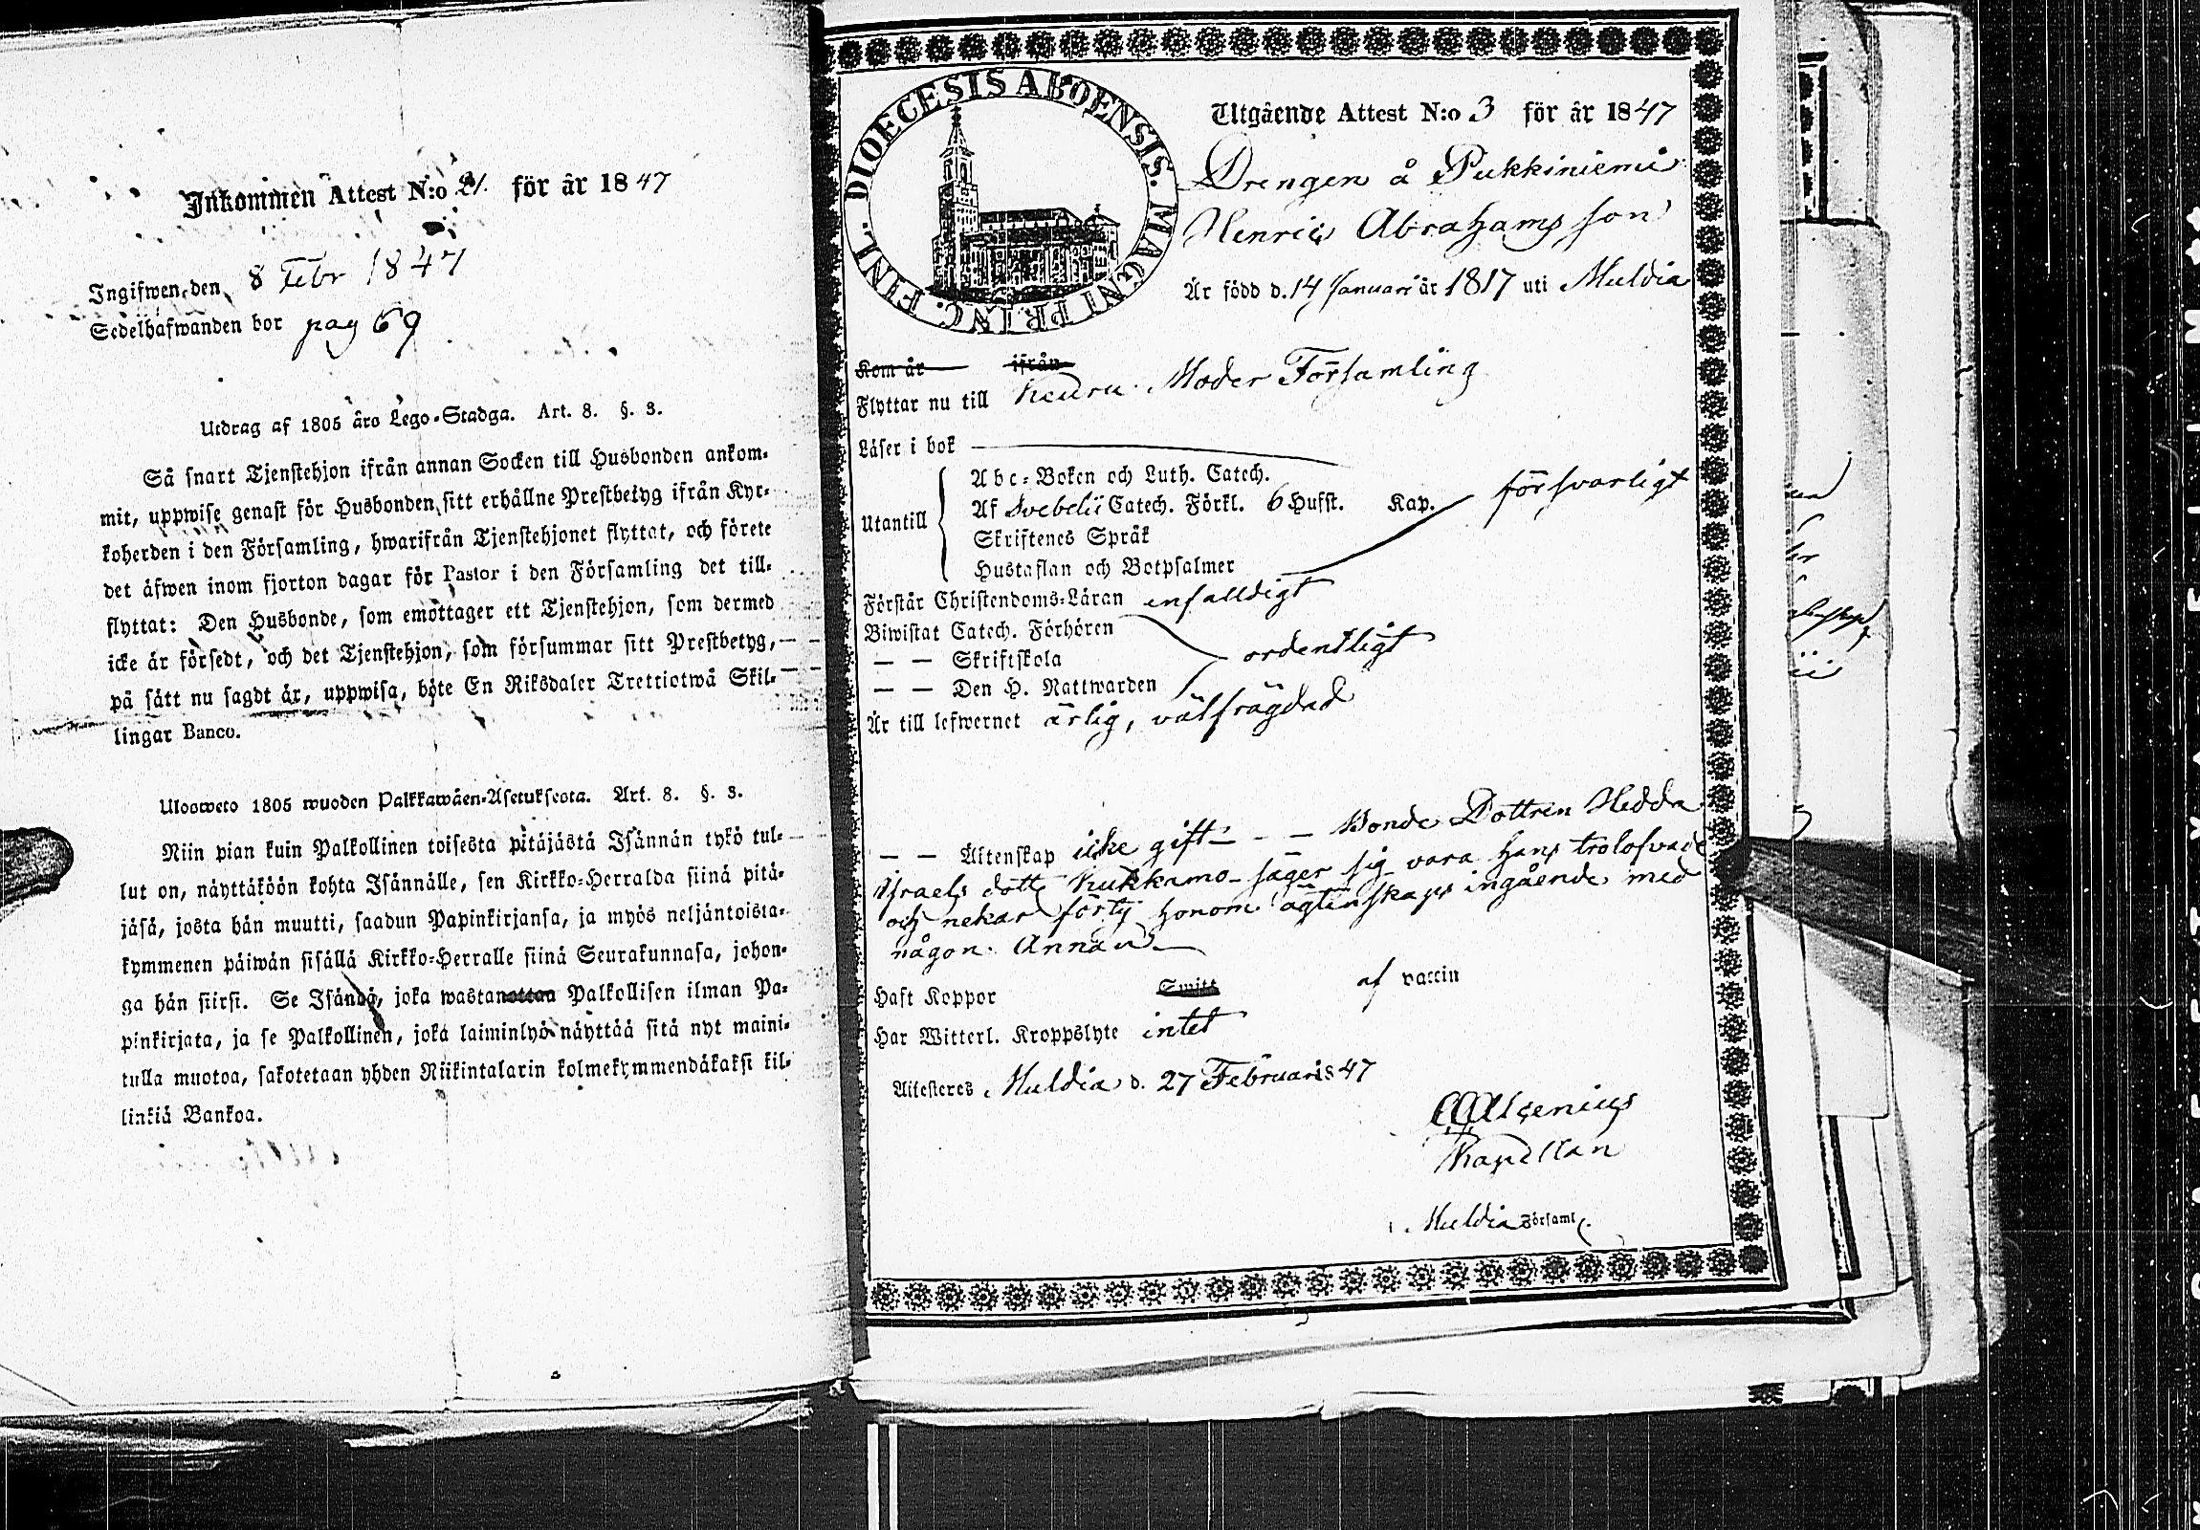 Inkommen Attest N:o 21. för år 1847
Ingifwen den 8 Febr 1847
Sedelhafwanden bor pag 69
Utdrag af 1805 års Lego-Stadga. Art. 8. §. 3.
Så snart Tjenstehjon ifrån annan Socken till Husbonden ankom-
mit, uppwise genast för Husbonden sitt erhållne Prestbetyg ifrån Kyr-
koherden i den Församling, hwarifrån Tjenstehjonet flyttat, och förete
det äfwen inom fjorton dagar för Pastor i den Församling det till-
flyttat: Den Husbonde, som emottager ett Tjenstehjon, som dermed
icke är försedt, och det Tjenstehjon, som försummar sitt Prestbetyg,
på sätt nu sagdt är, uppwisa, böte En Riksdaler Trettiotwå Skil-
lingar Banco.
Ulosweto 1805 wuoden Palkkawäen-Asetuksesta. Art. 8. §. 3.
Niin pian kuin Palkollinen toisesta pitäjästä Isännän tykö tul-
lut on, näyttäköön kohta Isännälle, sen Kirkko-Herralda siinä pitä-
jäsä, josta hän muutti, saadun Papinkirjansa, ja myös neljäntoista-
kymmenen päiwän sisällä Kirkko-Herralle siinä Seurakunnasa, johon-
ga hän siirsi. Se Isändä, joka wastanottaa Palkollisen ilman Pa-
pinkirjata, ja se Palkollinen, joka laiminlyö näyttää sitä nyt maini-
tulla muotoa, sakotetaan yhden Riikintalarin kolmekymmendäkaksi kil-
linkiä Bankoa.
DIOECESIS ABOENSIS. MAGNI PRINC. FINL.
Utgående Attest N:o 3 för år 1847
Drengen å Pukkiniemi
Henric Abrahamsson
Är född d. 14 Januari år 1817 uti Muldia
Kom år ifrån
Flyttar nu till Keuru Moder Församling
Läser i bok
Abc-Boken och Luth. Catech.
Utantill Af Svebelii Catech. Förkl. 6 Hufst. Kap. försvarligt
Skriftenes Språk
Hustaflan och Botpsalmer
Förstår Christendoms-Läran enfalldigt
Biwistat Catech. Förhören
— — Skriftskola ordentligt
— — Den H. Nattwarden
Är till lefwernet ärlig, välfrägdad
— — Äktenskap icke gift – – Bonde Dottren Hedda
Israels dotter Kukkamo säger sig vara hans trolofvade
och nekar förty honom ägtenskaps ingående med
någon Annan
Haft Koppor Smitt af vaccin
Har Witterl. Kroppslyte intet
Attesteres Muldia d. 27 Februari 1847
Kapellan
i Muldia Församl.